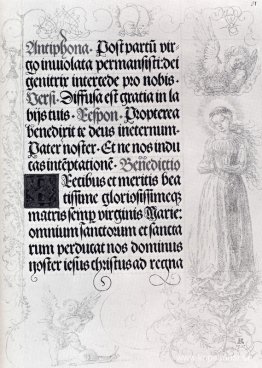 51
Antiphona. Post partū vir-
go inuiolata permansisti: dei
genitrix intercede pro nobis.
Versi. Diffusa est gratia in la
bijs tuis. Respon. Propterea
benedixit te deus ineternum.
Pater noster. Et ne nos indu
cas intēptationē. Benedictio
Precibus et meritis bea
tissime gloriosissimeqȝ
matris semp virginis Marie:
omnium sanctorum et sancta
rum perducat nos dominus
noster iesus christus ad regna